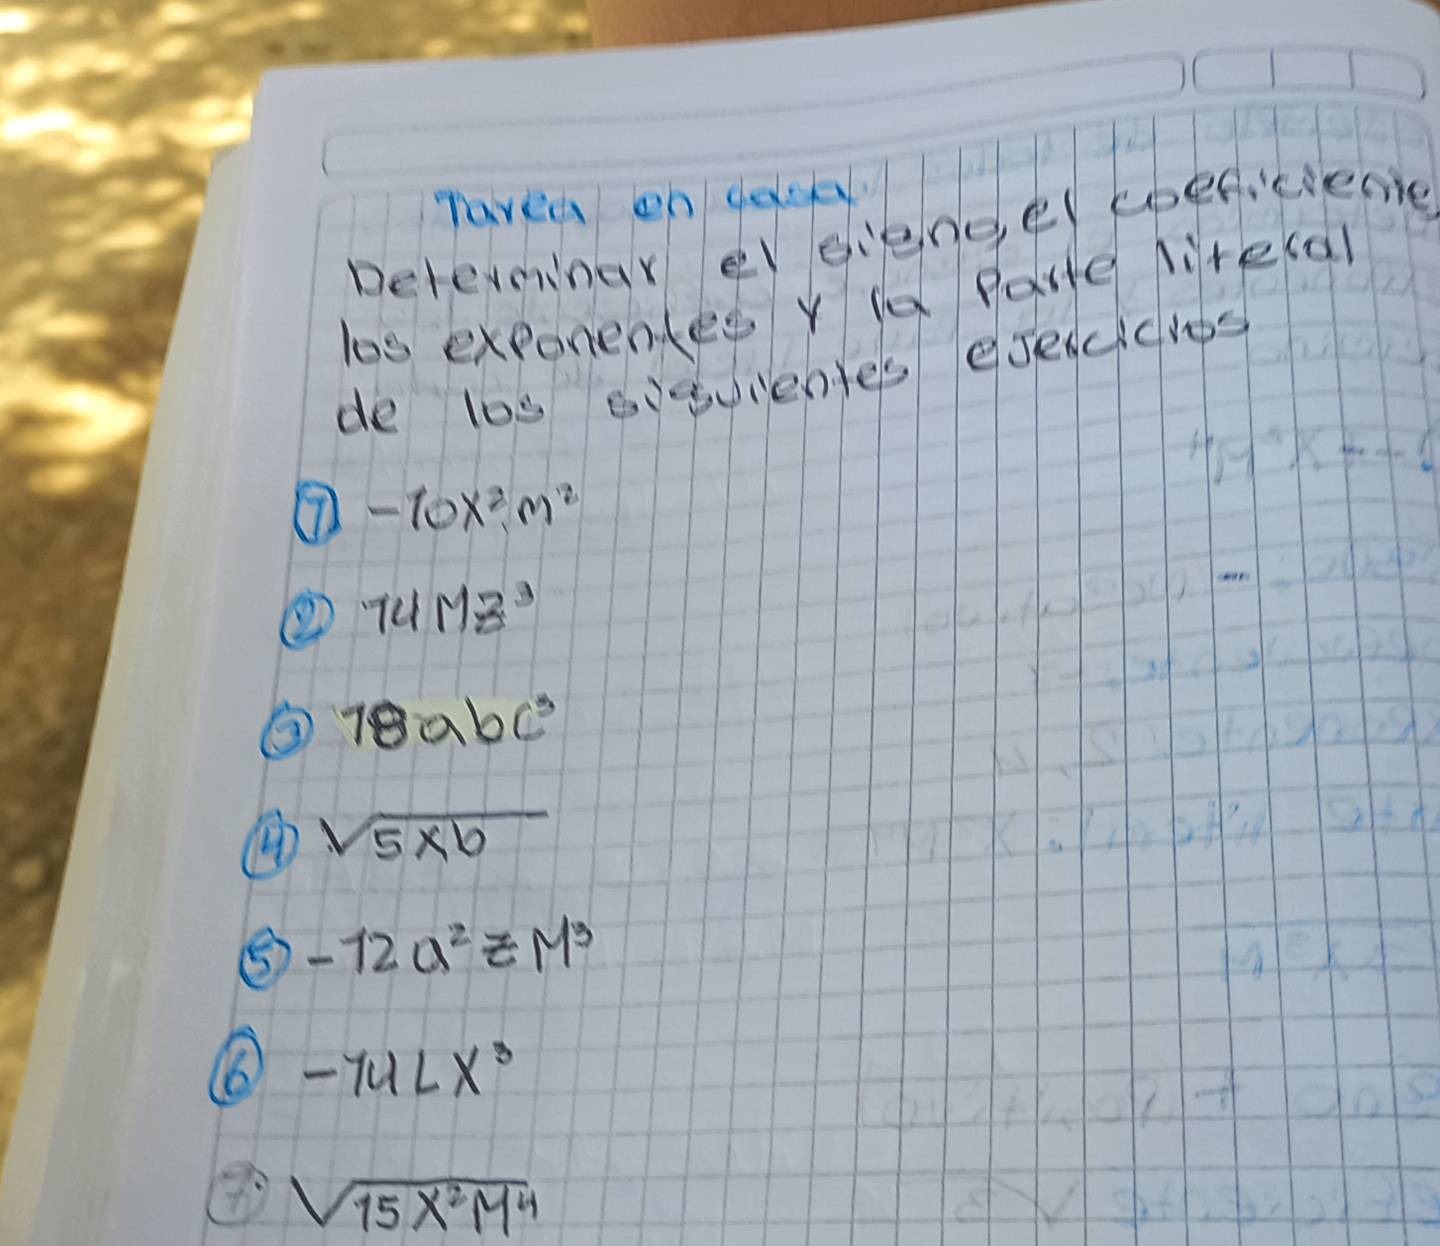 Tarea en casa
Determinar el signo, el coeficiente
los exponentes y la parte literal
de los siguientes ejercicios
① -10x²m²
② 14Mz³
③ 18abc³
④ √5xb
⑤ -12a²zM³
⑥ -14Lx³
7. √15x²M⁴